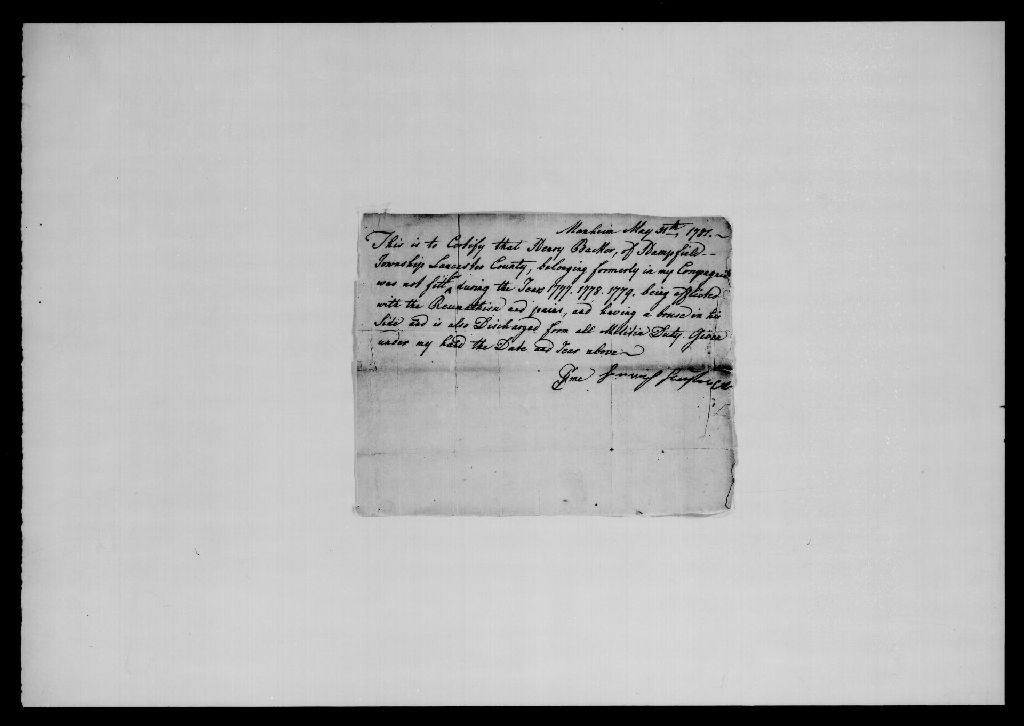 Manheim May 31th, 1781.
This is to Certify that Henry Backer, of Hampfield
Township Lancaster County, belonging formerly in my Compagnie
was not fitt, during the Years 1777. 1778. 1779. being afflicted
with the Reumathism and pains, and having a bruse in his
Side and is also Discharged form all Militia Duty. Given
under my hand the Date and Year above
Pme